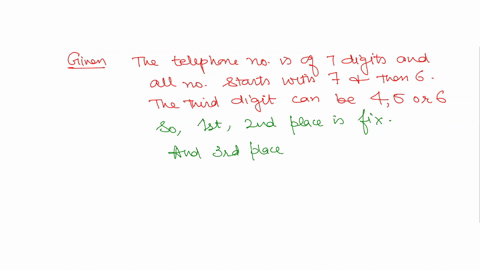 Given The telephone no. is of 7 digits and
all no. starts with 7 & then 6.
The third digit can be 4, 5 or 6
So, 1st, 2nd place is fix.
And 3rd place